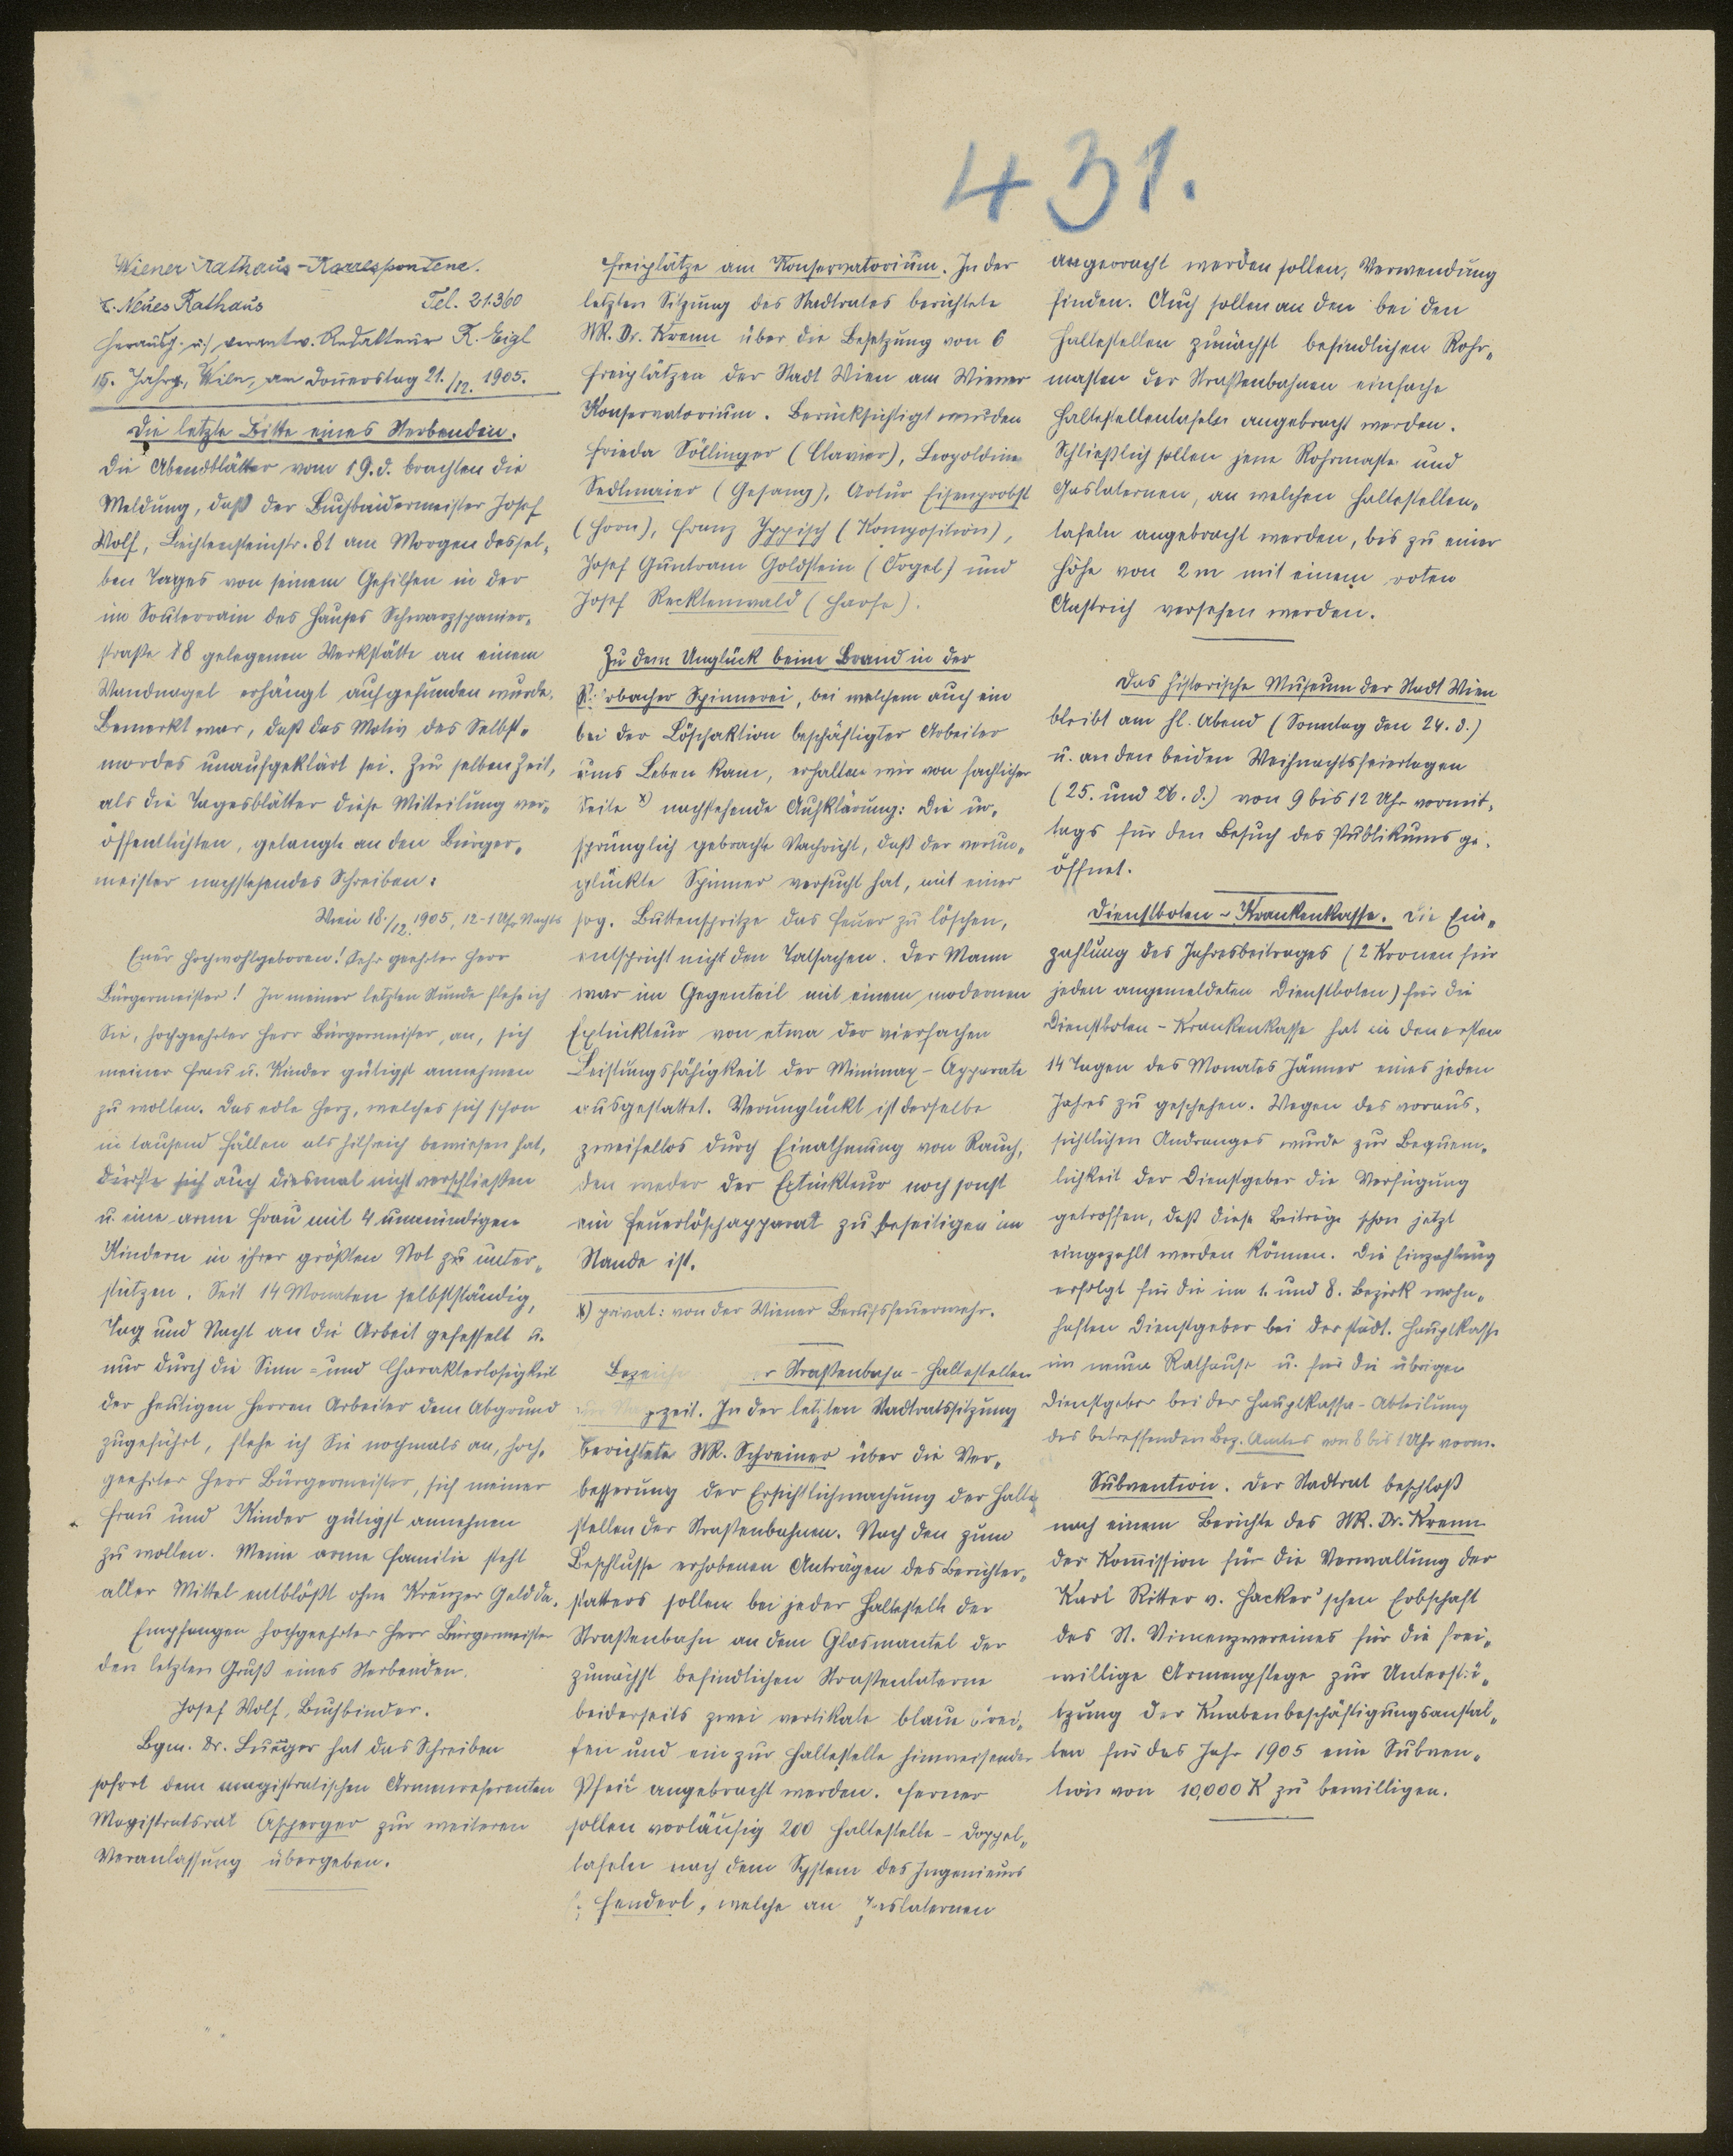 431.
Wiener Rathaus-Korrespondenz.
I. Neues Rathaus Tel. 21360
Herausg. u. verantw. Redakteur R. Eigl
15. Jahrg., Wien, am Donnerstag 21./12. 1905.
Die letzte Bitte eines Sterbenden.
Die Abendblätter vom 19. d. brachten die
Meldung, daß der Buchbindermeister Josef
Wolf, Liechtensteinstr. 81 am Morgen dessel-
ben Tages von seinem Gehilfen in der
im Souterrain des Hauses Schwarzspanier-
straße 18 gelegenen Werkstätte an einem
Wandnagel erhängt aufgefunden wurde.
Bemerkt war, daß das Motiv des Selbst-
mordes unaufgeklärt sei. Zur selben Zeit,
als die Tagesblätter diese Mitteilung ver-
öffentlichten, gelangte an den Bürger-
meister nachstehendes Schreiben:
Wien 18./12. 1905, 12-1 Uhr Nachts
Euer Hochwohlgeboren! Sehr geehrter Herr
Bürgermeister! In meiner letzten Stunde flehe ich
Sie, hochgeehrter Herr Bürgermeister, an, sich
meiner Frau u. Kinder gütigst annehmen
zu wollen. Das edle Herz, welches sich schon
in tausend Fällen als hilfreich bewiesen hat,
dürfte sich auch diesmal nicht verschließen
u. eine arme Frau mit 4 unmündigen
Kindern in ihrer größten Not zu unter-
stützen. Seit 14 Monaten selbstständig,
Tag und Nacht an die Arbeit gefesselt u.
nur durch die Sinn- und Charakterlosigkeit
der heutigen Herren Arbeiter dem Abgrund
zugeführt, flehe ich Sie nochmals an, hoch-
geehrter Herr Bürgermeister, sich meiner
Frau und Kinder gütigst annehmen
zu wollen. Meine arme Familie steht
aller Mittel entblößt ohne Kreuzer Geld da.
Empfangen hochgeehrter Herr Bürgermeister
den letzten Gruß eines Sterbenden.
Josef Wolf, Buchbinder.
Bgm. Dr. Lueger hat das Schreiben
sofort dem magistratischen Armenreferenten
Magistratsrat Asperger zur weiteren
Veranlassung übergeben.
Freiplätze am Konservatorium. In der
letzten Sitzung des Stadtrates berichtete
StR. Dr. Krenn über die Besetzung von 6
Freiplätzen der Stadt Wien am Wiener
Konservatorium. Berücksichtigt wurden
Frieda Söllinger (Clavier), Leopoldine
Sedlmaier (Gesang), Artur Eisenprobst
(Horn), Franz Ippisch (Komposition),
Josef Guntram Goldstein (Orgel) und
Josef Recktenwald (Harfe).
Zu dem Unglück beim Brand in der
Spinnerei, bei welchem auch ein
bei der Löschaktion beschäftigter Arbeiter
ums Leben kam, erhalten wir von fachlicher
Seite x) nachstehende Aufklärung: Die ur-
sprünglich gebrachte Nachricht, daß der verun-
glückte Spinner versucht hat, mit einer
sog. Buttenspritze das Feuer zu löschen,
entspricht nicht den Tatsachen. Der Mann
war im Gegenteil mit einem modernen
Extinkteur von etwa der vierfachen
Leistungsfähigkeit der Minimax-Apparate
ausgestattet. Verunglückt ist derselbe
zweifellos durch Einathmung von Rauch,
den weder der Extinkteur noch sonst
ein Feuerlöschapparat zu beseitigen im
Stande ist.
x) privat: von der Wiener Berufsfeuerwehr.
Straßenbahn-Haltestellen
zeit. In der letzten Stadtratssitzung
berichtete StR. Schreiner über die Ver-
besserung der Ersichtlichmachung der Halte
stellen der Straßenbahnen. Nach den zum
Beschlusse erhobenen Anträgen des Berichter-
statters sollen bei jeder Haltestelle der
Straßenbahn an dem Glasmantel der
zunächst befindlichen Straßenlaterne
beiderseits zwei vertikale blaue Strei-
fen und ein zur Haltestelle hinweisender
Pfeil angebracht werden. Ferner
sollen vorläufig 200 Haltestelle-Doppel-
tafeln nach dem System des Ingenieurs
Henderl, welche an Gaslaternen
angebracht werden sollen, Verwendung
finden. Auch sollen an den bei den
Haltestellen zunächst befindlichen Rohr-
masten der Straßenbahnen einfache
Haltestellentafeln angebracht werden.
Schließlich sollen jene Rohrmaste und
Gaslaternen, an welchen Haltestellen-
tafeln angebracht werden, bis zu einer
Höhe von 2 m mit einem roten
Anstrich versehen werden.
Das historische Museum der Stadt Wien
bleibt am hl. Abend (Sonntag den 24. d.)
u. an den beiden Weihnachtsfeiertagen
(25. und 26. d.) von 9 bis 12 Uhr vormit-
tags für den Besuch des Publikums ge-
öffnet.
Dienstboten-Krankenkasse. Die Ein-
zahlung des Jahresbeitrages (2 Kronen für
jeden angemeldeten Dienstboten) für die
Dienstboten-Krankenkasse hat in den ersten
14 Tagen des Monates Jänner eines jeden
Jahres zu geschehen. Wegen des voraus-
sichtlichen Andranges wurde zur Bequem-
lichkeit der Dienstgeber die Verfügung
getroffen, daß diese Beiträge schon jetzt
eingezahlt werden können. Die Einzahlung
erfolgt für die im 1. und 8. Bezirk wohn-
haften Dienstgeber bei der städt. Hauptkasse
im neuen Rathause u. für die übrigen
Dienstgeber bei der Hauptkassa-Abteilung
des betreffenden Bez. Amtes von 8 bis 1 Uhr vorm.
Subvention. Der Stadtrat beschloß
nach einem Berichte des StR. Dr. Krenn
der Kommission für die Verwaltung der
Karl Ritter v. Hacker'schen Erbschaft
des St. Vinzenzvereines für die frei-
willige Armenpflege zur Unterstü-
tzung der Knabenbeschäftigungsanstal-
ten für das Jahr 1905 eine Subven-
tion von 10,000 K zu bewilligen.